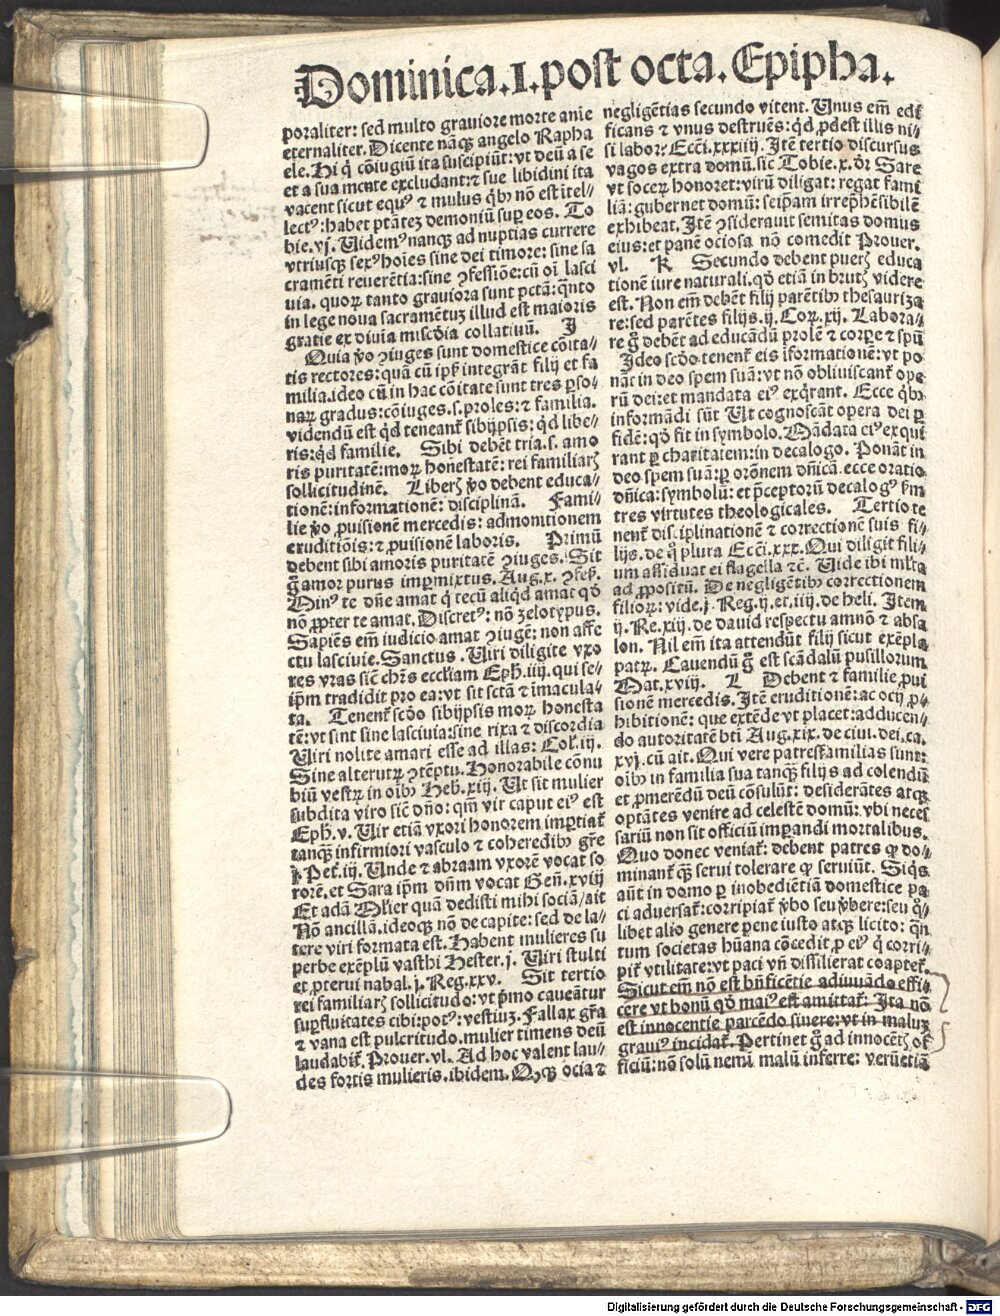 Dominica.I.post octa.Epipha.
poraliter: sed multo graviore morte anie
eternaliter. Dicente nāqꝫ angelo Rapha
ele. Hi q̇ cōiugiū ita suscipiūt: vt deū a se
et a sua mente excludant: ⁊ sue libidini ita
vacent sicut equꝰ ⁊ mulus qͥbꝫ nō est ītel-
lectꝰ: habet ptātez demoniū super eos. To
bie.vj. Uidemꝰ nanqꝫ ad nuptias currere
vtriusqꝫ sexꝰ hoīes sine dei timore: sine sa
cramēti reverētia: sine ꝯfessiōe: cū oī lasci
via. quoꝝ tanto graviora sunt pctā: qͣnto
in lege noua sacramētuꝫ illud est maioris
gratie ex diuīa miscōia collatiuū. J
Quia ꝟo ꝯiuges sunt domestice cōīta-
tis rectores: quā cū ipī integrāt filij et fa
milia. ideo cū in hac cōītate sunt tres ꝑso-
naꝝ gradus: cōiuges.s. proles: ⁊ familia.
videndū est qͥd teneanꞇ̄ sibijpsis: qͥd libe-
ris: qͥd familie. Sibi debēt tria.s. amo
ris puritatē: moꝝ honestatē: rei familiarꝭ
sollicitudinē. Liberꝭ ꝟo debent educa-
tionē: informationē: disciplinā. Fami-
lie ꝟo ꝓuisionē mercedis: admonitionem
eruditiōis: ⁊ ꝓuisionē laboris. Primū
debent sibi amoris puritatē ꝯiuges. Sit
g̊ amor purus impermixtus. Aug.x. ꝯfeſ.
Minꝰ te dn̄e amat q̇ tecū aliqͥd amat qd̄
nō ꝓpter te amat. Discretꝰ: nō zelotypus.
Sapiēs em̄ iudicio amat ꝯiugē: non affe
ctu lasciuie. Sanctus. Uiri diligite vxo
res vr̄as sic̄ chr̄s ecclīam Eph.iiij. qui se-
ip̄m tradidit pro ea: vt sit sctā ⁊ īmacula-
ta. Tenenꞇ̄ scd̄o sibijpsis moꝝ honesta
tē: vt sint sine lasciuia: sine rixa ⁊ discordia
Uiri nolite amari esse ad illas: Col̄.iij.
Sine alterutꝝ ꝯtēptu. Honorabile cōnu
biū vestꝝ in oībꝫ Heb.xiij. Ut sit mulier
subdita viro sic̄ dn̄o: qm̄ vir caput eiꝰ est
Eph.v. Uir etiā vxori honorem impertiat̄
tanqꝫ infirmiori vasculo ⁊ coheredibꝫ gr̄e
j. Pet̄.iij. Unde ⁊ abraam vxorē vocat so
rorē. et Sara ip̄m dn̄m vocat Geń.xviij
Et adā Mulier quā dedisti mihi sociā/ait
Nō ancillā. ideoqꝫ nō de capite: sed de la-
tere viri formata est. Habent mulieres su
perbe exēplū vasthi Hester.j. Uiri stulti
et ꝓterui nabal.j. Reg.xxv. Sit tertio
rei familiarꝭ sollicitudo: vt pͥmo caueātur
suꝑfluitates cibi: potꝰ: vestiuꝫ. Fallax gr̄a
⁊ vana est pulcritudo. mulier timens deū
laudabit̄. Prouer.vl. Ad hoc valent lau-
des fortis mulieris. ibidem. Qꝫqꝫ ocia ⁊
negligētias secundo vitent. Unus em̄ edi
ficans ⁊ vnus destruēs: qͥd ꝓdest illis ni-
si labor: Ecci.xxxiiij. Itē tertio discursus
vagos extra domū. sic Tobie.x. dr̄ Sare
vt soceꝝ honoret: virū diligat: regat fami
liā: gubernet domū: seip̄am irrep̄hēsibilē
exhibeat. Itē ꝯsiderauit semitas domus
eius: et panē ociosa nō comedit Prouer.
vl. K Secundo debent puerꝭ educa
tionē iure naturali. qd̄ etiā in brutꝭ videre
est. Non em̄ debēt filij parētibꝫ thesauriza
re: sed parētes filijs.ij. Coꝝ.xij. Labora-
re g̊ debēt ad educādū prolē ⁊ corpe ⁊ sp̄u
Ideo scd̄o tenenꞇ̄ eis īformationē: vt po
nāt in deo spem suā: vt nō obliuiscant̄ ope
rū dei: et mandata eiꝰ exqͥrant. Ecce qͥbꝫ
informādi sūt Ut cognoscāt opera dei ꝑ
fidē: qd̄ fit in symbolo. Mādata eiꝰ exqui
rant ꝑ charitatem: in decalogo. Ponāt in
deo spem suā: ꝑ orōnem dn̄icā. ecce oratio
dn̄ica: symbolū: et p̄ceptorū decalogꝰ ẜm
tres virtutes theologicales. Tertio te
nent̄ disciplinationē ⁊ correctionē suis fi-
lijs. de qͦ plura Ecci.xxx. Qui diligit fili-
um assiduat ei flagella ⁊c̄. Uide ibi ml̄ta
ad ꝓpositū. De negligētibꝫ correctionem
filioꝝ: vide.j. Reg.ij. et.iiij. de heli. Item
ij. Re.xiij. de dauid respectu amnō ⁊ absa
lon. Nil em̄ ita attendūt filij sicut exēpla
patꝝ. Cauendū g̊ est scādalū pusillorum
Mat.xviij. L Debent ⁊ familie ꝓui
sionē mercedis. Itē eruditionē: ac ocij ꝓ-
hibitionē: que extēde vt placet: adducen-
do autoritatē bt̄i Aug.xix. de ciui. dei. ca.
xvj. cū ait. Qui vere patresfamilias sunt:
oībꝫ in familia sua tanqꝫ filijs ad colendū
et ꝓmerēdū deū cōsulūt: desiderātes atqꝫ
optātes venire ad celestē domū: vbi neces
sariū non sit officiū imperandi mortalibus.
Quo donec veniat̄: debent patres qꝫ do-
minant̄ qꝫ serui tolerare qꝫ seruiūt. Siqͥs
aūt in domo ꝑ inobediētiā domestice pa
ci aduersat̄: corripiat̄ ꝟbo seu ꝟbere: seu qͦ-
libet alio genere pene iusto atqꝫ licito: qn̄
tum societas hūana cōcedit ꝓ eiꝰ q̇ corri-
pit̄ vtilitate: vt paci vn̄ dissilierat coaptet̄.
Sicut em̄ nō est bn̄ficētie adiuuādo effi-
cere vt bonū qd̄ maiꝰ est amittat̄: Ita nō
est innocentie parcēdo sinere: vt in maluꝫ
grauiꝰ incidat̄. Pertinet g̊ ad innocētꝭ of
ficiū: nō solū nemī malū inferre: verūetiā
Digitalisierung gefördert durch die Deutsche Forschungsgemeinschaft - DFG